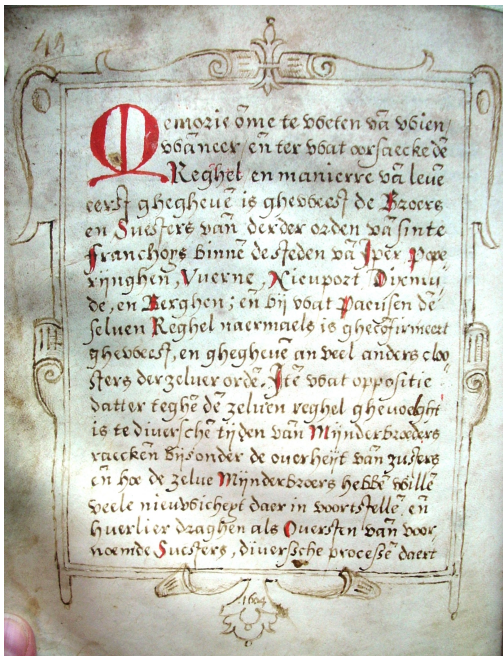 Memorie om̄e te vveten vā vvien,
vvāneer, en̄ ter vvat oorsaecke dē
Reghel en manierre vā levē
eerst ghegheuē is ghevveest de Broers
en Susters van̄ derder orden vā sinte
Franchoys binnē de steden vā Iper, Pope
rijnghen, Vuerne, Nieuport Dixmu
de, en Berghen; en̄ bij vvat Paeusen dē
seluen Reghel naermaels is ghecōfirmeert
ghevveest, en ghegheuē an veel anders cloo
sters der zeluer ordē. Itē vvat oppositie
datter teghē dē zeluen reghel ghevoght
is te diverschē tijden van̄ Mijnderbroeders
raeckēn bijsonder de overheijt van̄ zusters
en̄ hoe de zelue Mijnderbroers hebbē willē
veele nieuvvichept daer in voortstellē, en̄
huerlier draghen als Oversten van̄ voor
noemde Susters, diversche processē daert
1604